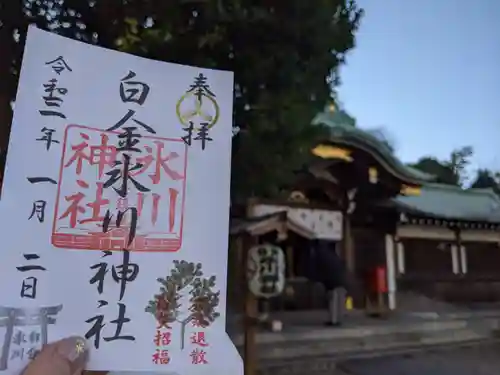 奉拝
白金氷川神社
氷川
神社
令和三年
一月
二日
厄災退散
大招福